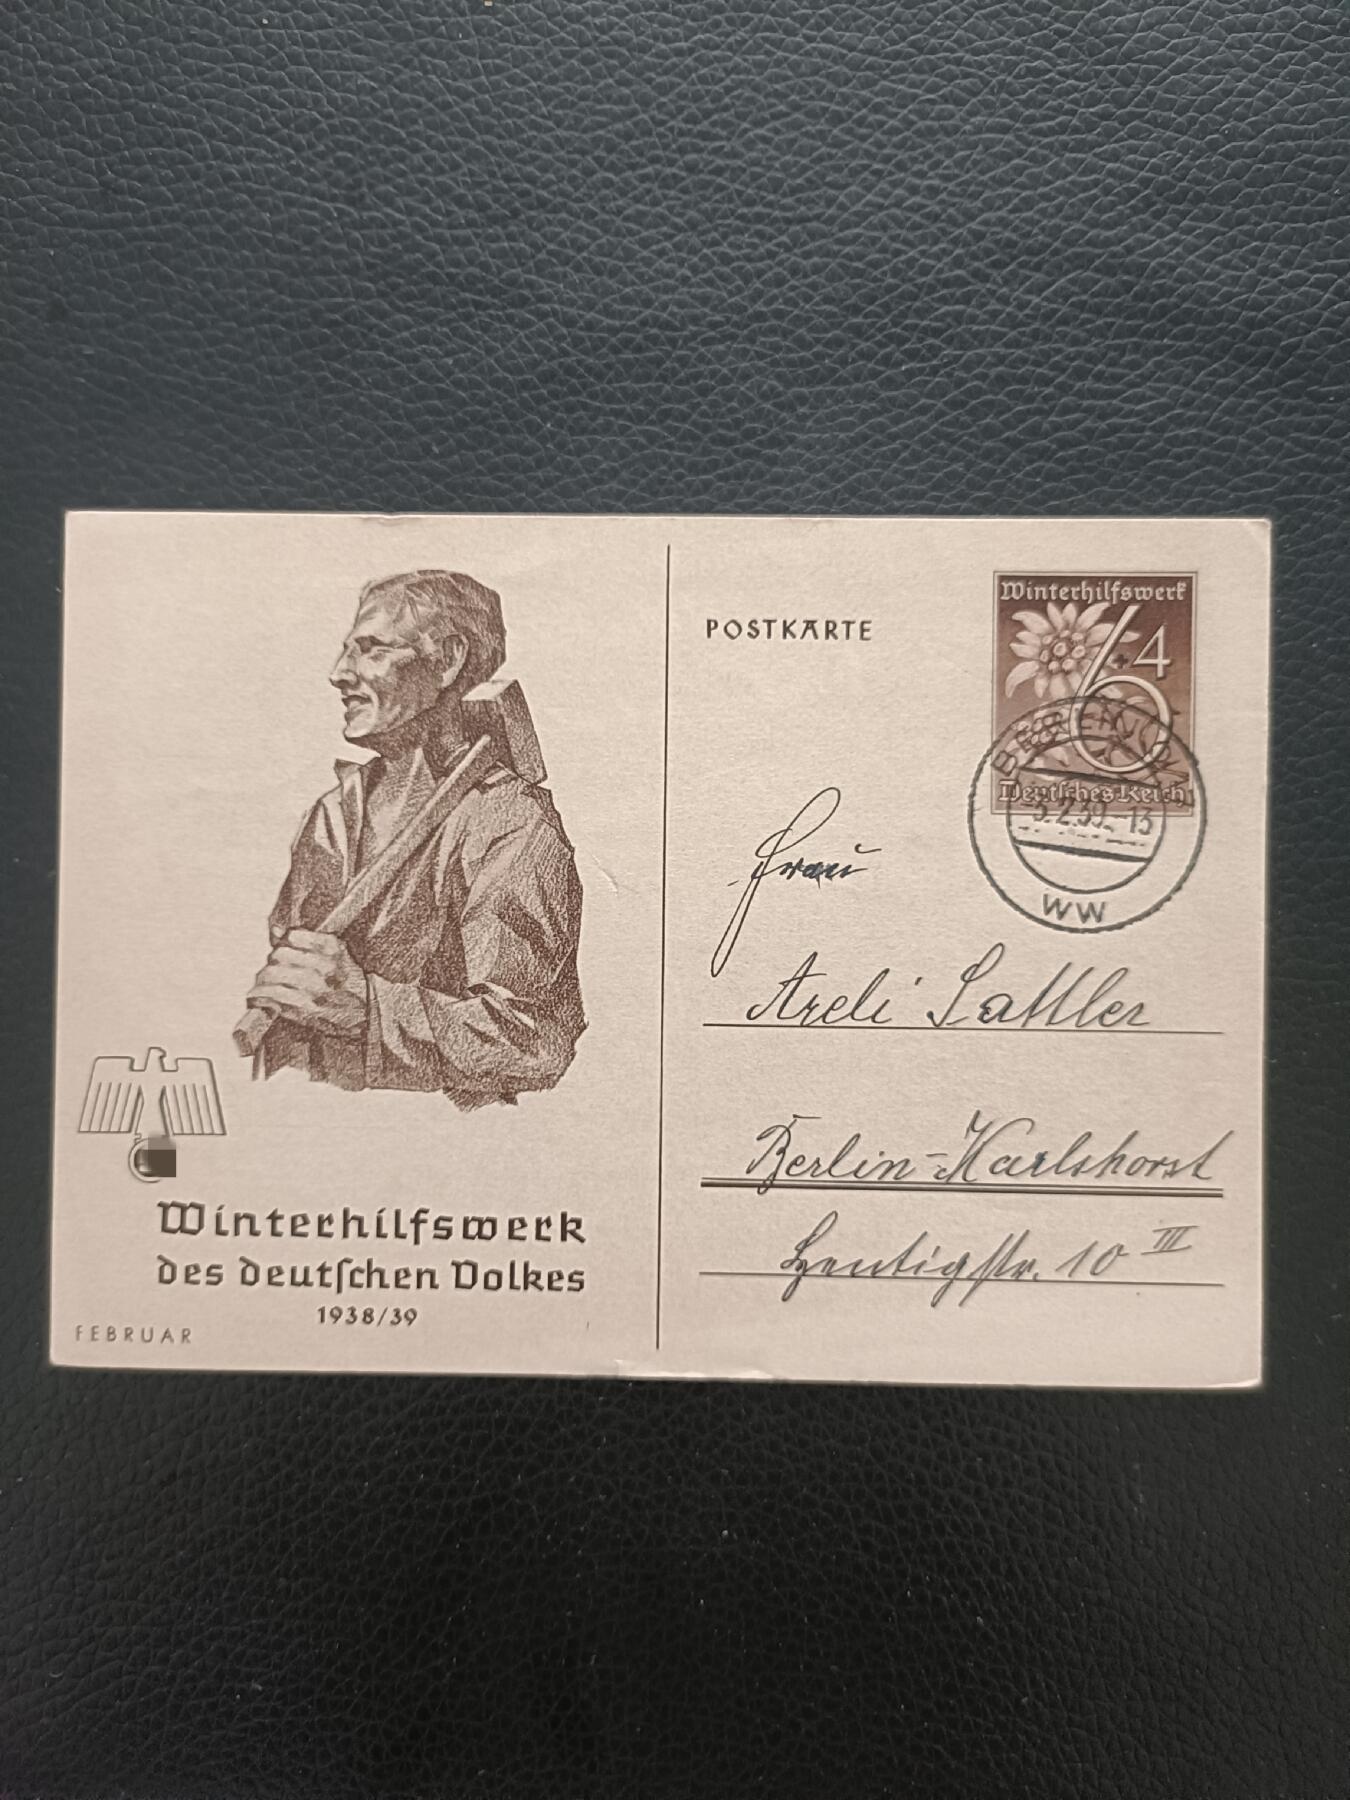 POSTKARTE
Winterhilfswerk
6+4
Deutsches Reich
3.2.39-13
WW
Frau
Areli Sattler
Berlin-Karlshorst
10 III
Winterhilfswerk
des deutschen Volkes
1938/39
FEBRUAR